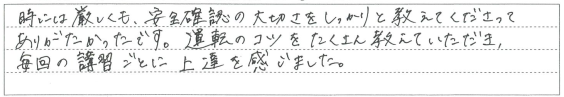 時には厳しくも、安全確認の大切さをしっかりと教えてくださって
ありがたかったです。運転のコツをたくさん教えていただき、
毎回の講習ごとに上達を感じました。